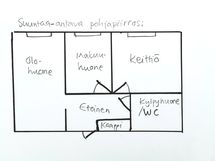 Suuntaa-antava pohjapiirros:
Olo-
huone
Makuu-
huone
Keittiö
Eteinen
Kaappi
Kylpyhuone
/WC